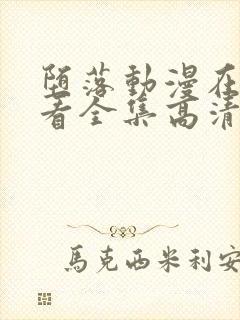 堕落動漫在
看全集高清
馬克西米利安